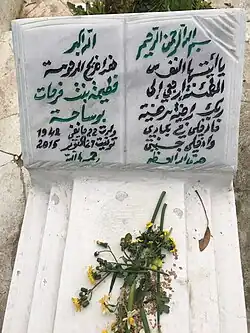 بسم الله الرحمن الرحيم
يا أيتها النفس
المطمئنة ارجعي إلى
ربك راضية مرضية
فادخلي في عبادي
وادخلي جنتي
صدق الله العظيم
الله أكبر
هذا ضريح المرحومة
فطيمة بنت فرحات
بوساحة
ولدت 22 جانفي 1942
توفيت أكتوبر 2015
رحمها الله